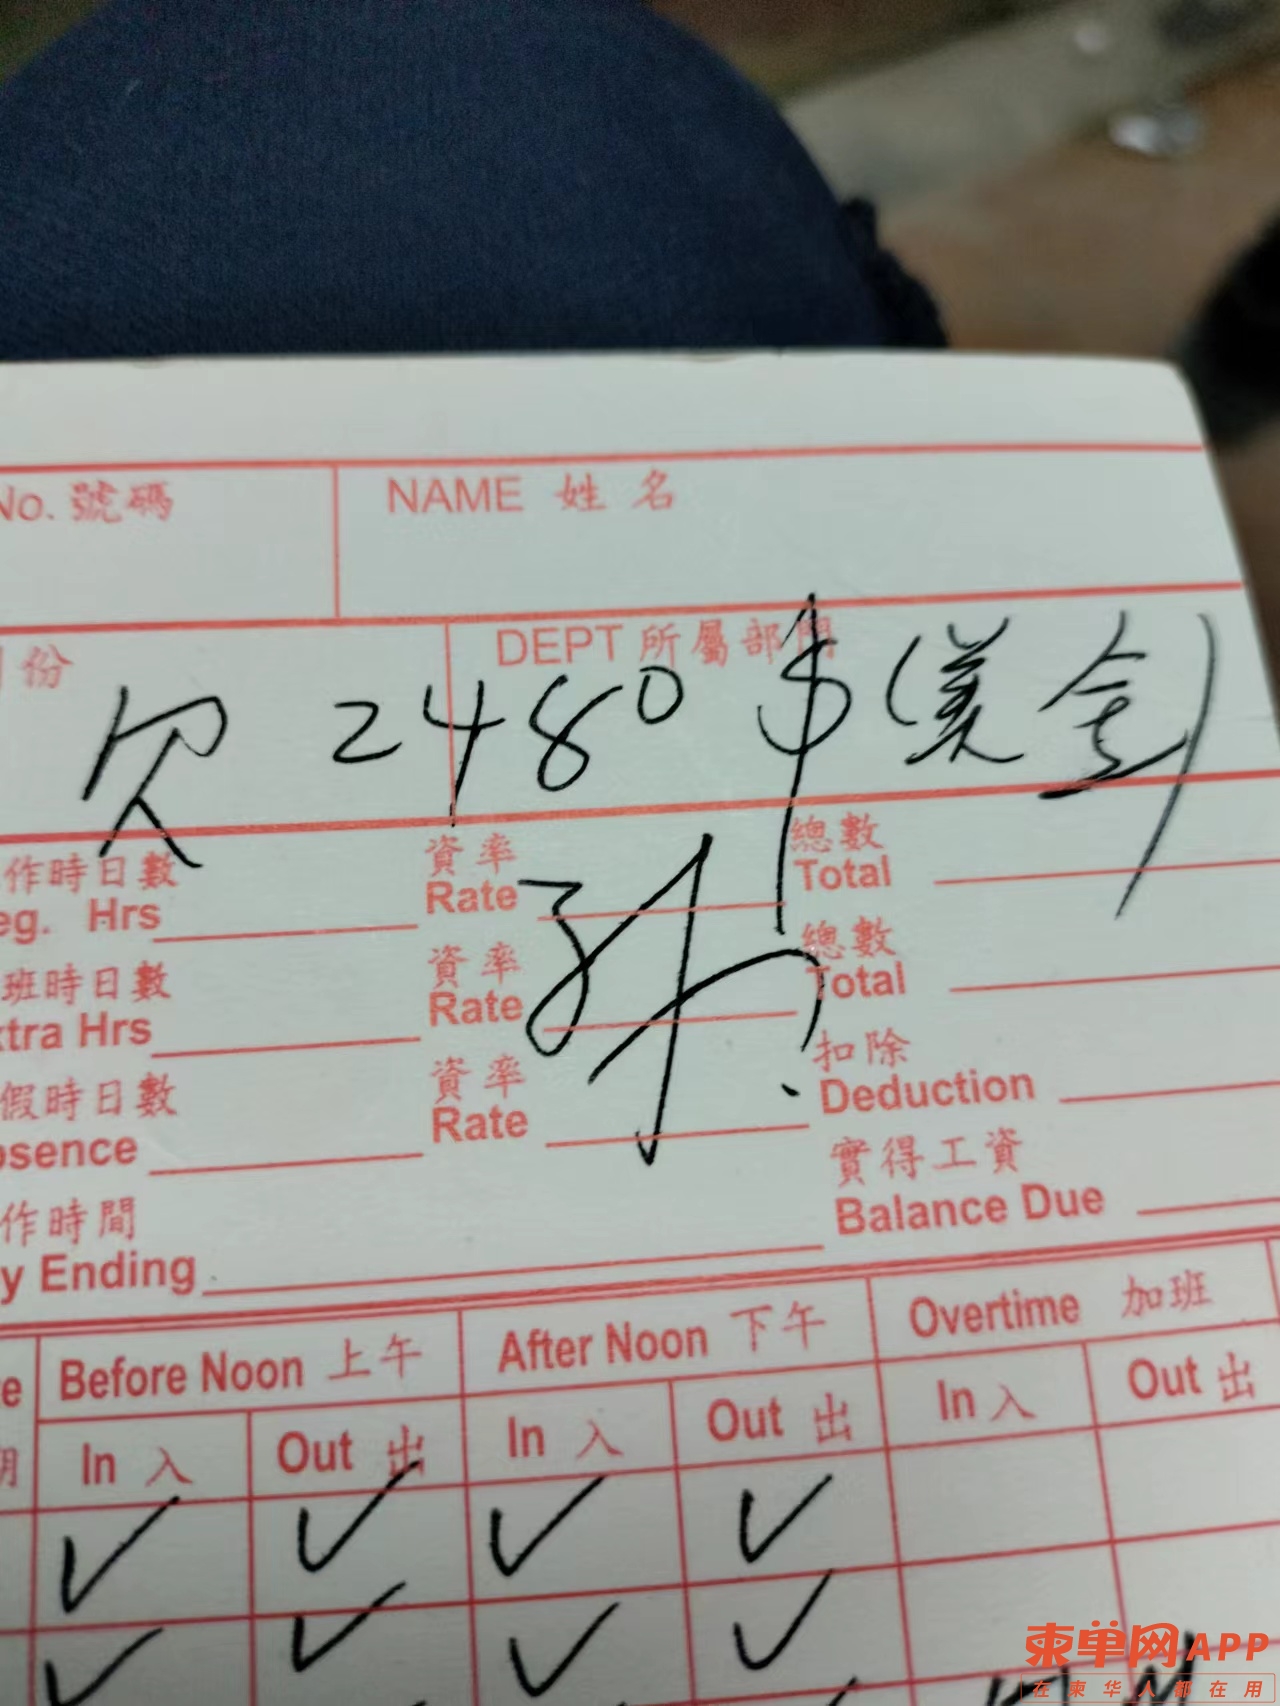 No. 號碼 NAME 姓名
份 DEPT 所屬部門
欠 2480 $ (美金)
作時日數 資率 總數
eg. Hrs Rate Total
班時日數 資率 總數
xtra Hrs Rate Total
假時日數 資率 扣除
bsence Rate Deduction
作時間 實得工資
y Ending Balance Due
Before Noon 上午 After Noon 下午 Overtime 加班
In 入 Out 出 In 入 Out 出 In 入 Out 出
柬单网APP
在柬华人都在用